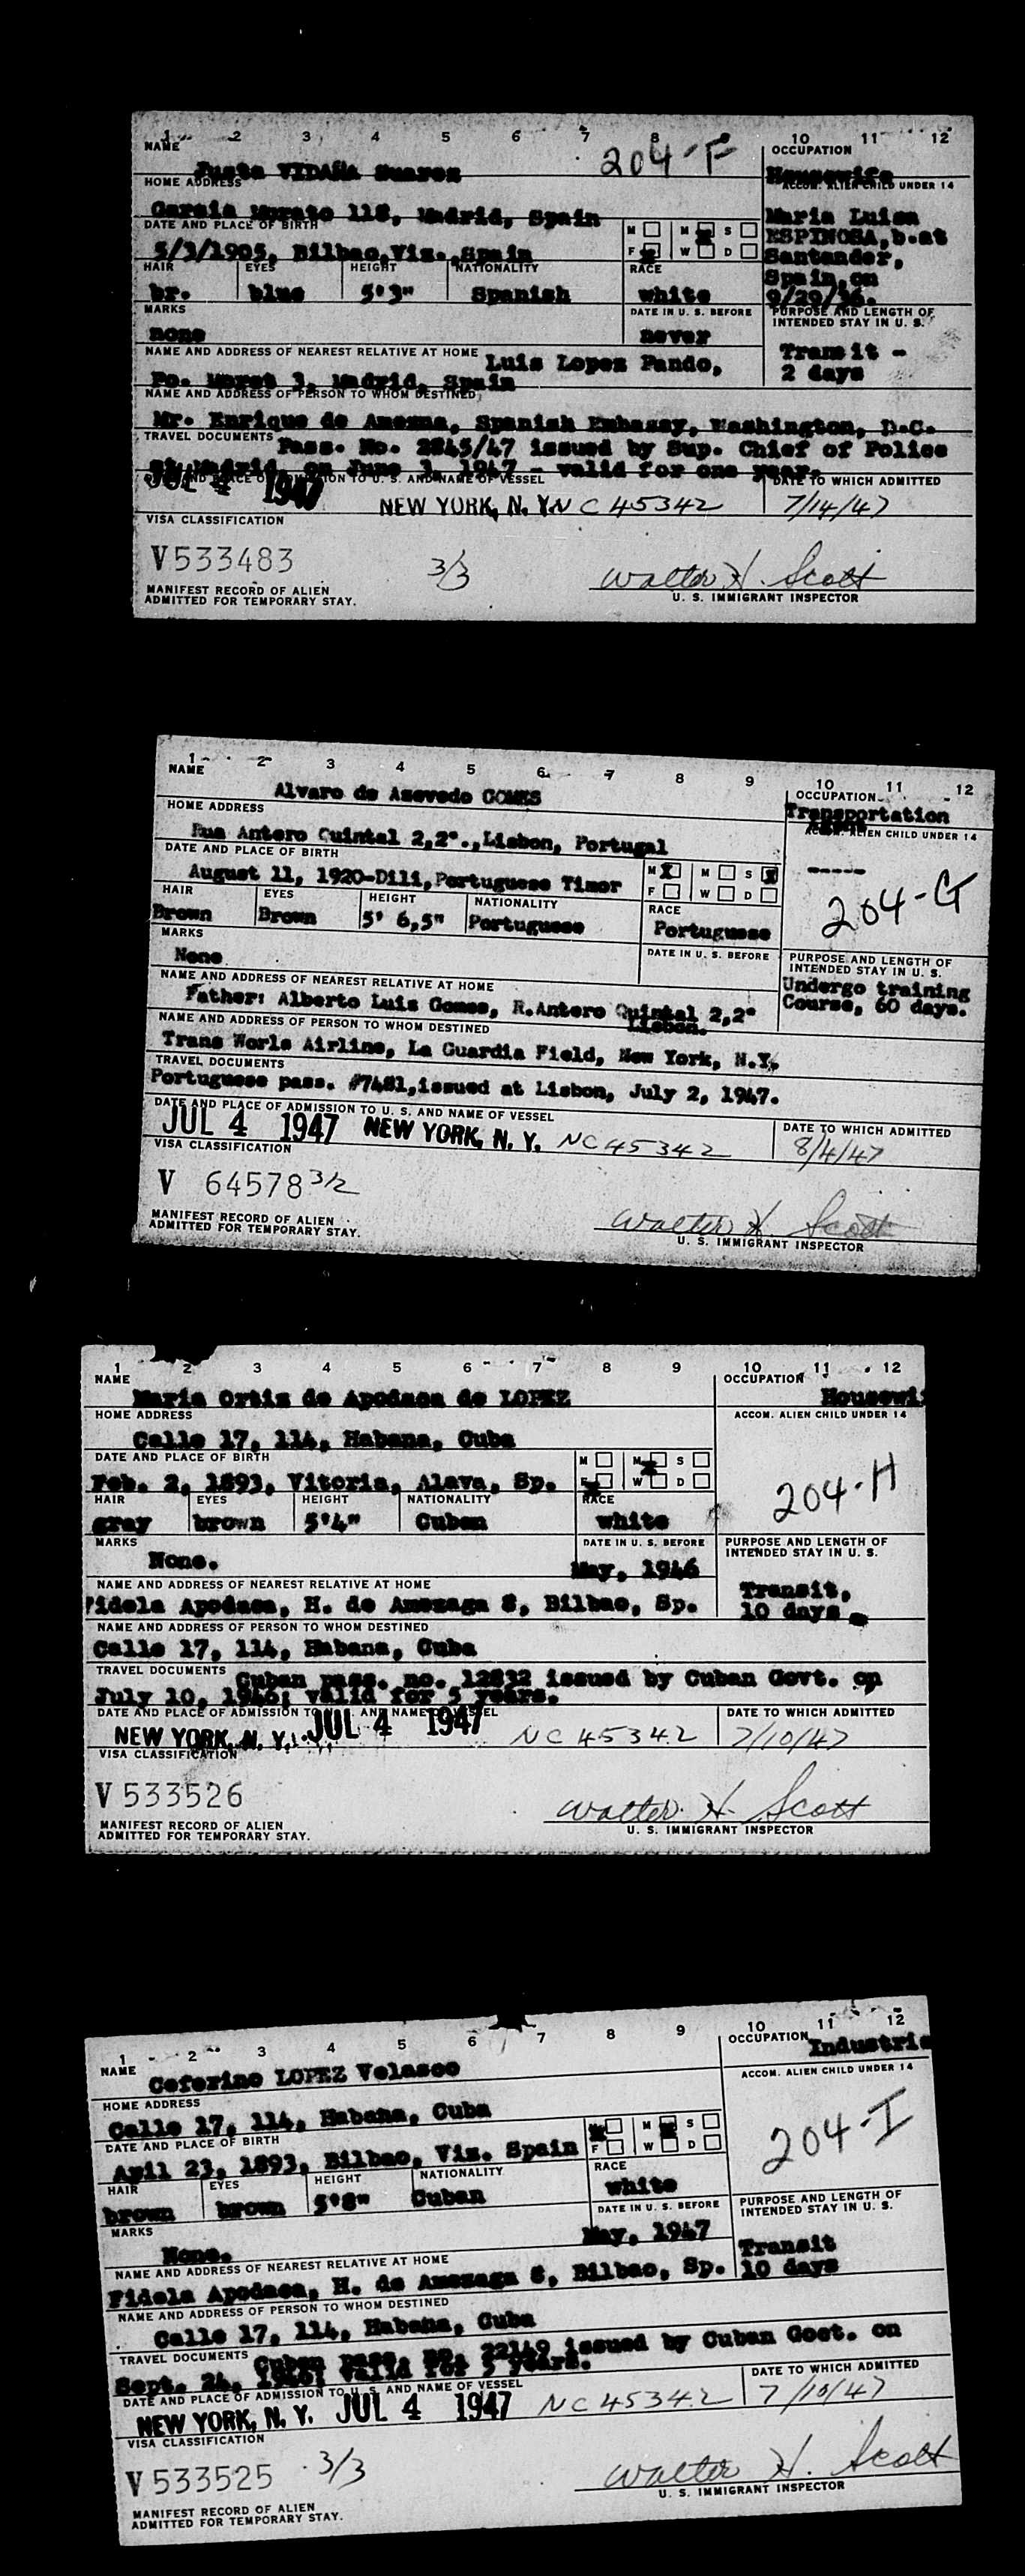 1 2 3 4 5 6 7 8 9 10 11 12
NAME
OCCUPATION
204-F
Justa VIDAÑA Suarez
Housewife
HOME ADDRESS
ACCOM. ALIEN CHILD UNDER 14
Garcia Morato 118, Madrid, Spain
Maria Luisa
ESPINOSA, b. at
Santander,
Spain, on
9/29/36.
DATE AND PLACE OF BIRTH
M M S
F W D
5/3/1905, Bilbao, Viz., Spain
HAIR EYES HEIGHT NATIONALITY RACE
br. blue 5'3" Spanish white
MARKS
DATE IN U. S. BEFORE
PURPOSE AND LENGTH OF
INTENDED STAY IN U. S.
none
never
Transit -
2 days
NAME AND ADDRESS OF NEAREST RELATIVE AT HOME Luis Lopez Pando,
Po. Moret 3, Madrid, Spain
NAME AND ADDRESS OF PERSON TO WHOM DESTINED
Mr. Enrique de Amezua, Spanish Embassy, Washington, D.C.
TRAVEL DOCUMENTS Pass. No. 2845/47 issued by Sup. Chief of Police
at Madrid, on June 3, 1947 - valid for one year.
DATE AND PLACE OF ADMISSION TO U. S. AND NAME OF VESSEL
DATE TO WHICH ADMITTED
JUL 4 1947 NEW YORK, N. Y. NC 45342 7/14/47
VISA CLASSIFICATION
V533483 3/3 Walter H. Scott
MANIFEST RECORD OF ALIEN
ADMITTED FOR TEMPORARY STAY.
U. S. IMMIGRANT INSPECTOR
1 2 3 4 5 6 7 8 9 10 11 12
NAME
OCCUPATION
Alvaro de Azevedo GOMES
Transportation
HOME ADDRESS
ACCOM. ALIEN CHILD UNDER 14
Rua Antero Quintal 2,2°., Lisbon, Portugal
-----
DATE AND PLACE OF BIRTH
M M S
F W D
August 11, 1920-Dili, Portuguese Timor
204-G
HAIR EYES HEIGHT NATIONALITY RACE
Brown Brown 5' 6,5" Portuguese Portuguese
MARKS
DATE IN U. S. BEFORE
PURPOSE AND LENGTH OF
INTENDED STAY IN U. S.
None
Undergo training
Course, 60 days.
NAME AND ADDRESS OF NEAREST RELATIVE AT HOME
Father: Alberto Luis Gomes, R. Antero Quintal 2,2°
Lisbon.
NAME AND ADDRESS OF PERSON TO WHOM DESTINED
Trans Worls Airline, La Guardia Field, New York, N.Y.
TRAVEL DOCUMENTS
Portuguese pass. #7481, issued at Lisbon, July 2, 1947.
DATE AND PLACE OF ADMISSION TO U. S. AND NAME OF VESSEL
DATE TO WHICH ADMITTED
JUL 4 1947 NEW YORK, N. Y. NC 45342 8/4/47
VISA CLASSIFICATION
V 64578 3/2 Walter H. Scott
MANIFEST RECORD OF ALIEN
ADMITTED FOR TEMPORARY STAY.
U. S. IMMIGRANT INSPECTOR
1 2 3 4 5 6 7 8 9 10 11 12
NAME
OCCUPATION
Maria Ortiz de Apodaca de LOPEZ
Housewi
HOME ADDRESS
ACCOM. ALIEN CHILD UNDER 14
Calle 17, 114, Habana, Cuba
DATE AND PLACE OF BIRTH
M M S
F W D
Feb. 2, 1893, Vitoria, Alava, Sp.
204-H
HAIR EYES HEIGHT NATIONALITY RACE
gray brown 5'4" Cuban white
MARKS
DATE IN U. S. BEFORE
PURPOSE AND LENGTH OF
INTENDED STAY IN U. S.
None.
May, 1946
Transit,
10 days
NAME AND ADDRESS OF NEAREST RELATIVE AT HOME
Fidela Apodaca, H. de Amezaga 8, Bilbao, Sp.
NAME AND ADDRESS OF PERSON TO WHOM DESTINED
Calle 17, 114, Habana, Cuba
TRAVEL DOCUMENTS Cuban pass. no. 12832 issued by Cuban Govt. on
July 10, 1946; valid for 5 years.
DATE AND PLACE OF ADMISSION TO U. S. AND NAME OF VESSEL
DATE TO WHICH ADMITTED
NEW YORK, N. Y. JUL 4 1947 NC 45342 7/10/47
VISA CLASSIFICATION
V533526 Walter H. Scott
MANIFEST RECORD OF ALIEN
ADMITTED FOR TEMPORARY STAY.
U. S. IMMIGRANT INSPECTOR
1 2 3 4 5 6 7 8 9 10 11 12
NAME
OCCUPATION Industria
Ceferino LOPEZ Velasco
HOME ADDRESS
ACCOM. ALIEN CHILD UNDER 14
Calle 17, 114, Habana, Cuba
DATE AND PLACE OF BIRTH
M M S
F W D
April 23, 1893, Bilbao, Viz. Spain
204-I
HAIR EYES HEIGHT NATIONALITY RACE
brown brown 5'8" Cuban white
MARKS
DATE IN U. S. BEFORE
PURPOSE AND LENGTH OF
INTENDED STAY IN U. S.
None.
May, 1947
Transit
10 days
NAME AND ADDRESS OF NEAREST RELATIVE AT HOME
Fidela Apodaca, H. de Amezaga 8, Bilbao, Sp.
NAME AND ADDRESS OF PERSON TO WHOM DESTINED
Calle 17, 114, Habana, Cuba
TRAVEL DOCUMENTS Cuban pass. no. 22149 issued by Cuban Gost. on
Sept. 24, 1946; valid for 5 years.
DATE AND PLACE OF ADMISSION TO U. S. AND NAME OF VESSEL
DATE TO WHICH ADMITTED
NEW YORK, N. Y. JUL 4 1947 NC 45342 7/10/47
VISA CLASSIFICATION
V533525 3/3 Walter H. Scott
MANIFEST RECORD OF ALIEN
ADMITTED FOR TEMPORARY STAY.
U. S. IMMIGRANT INSPECTOR